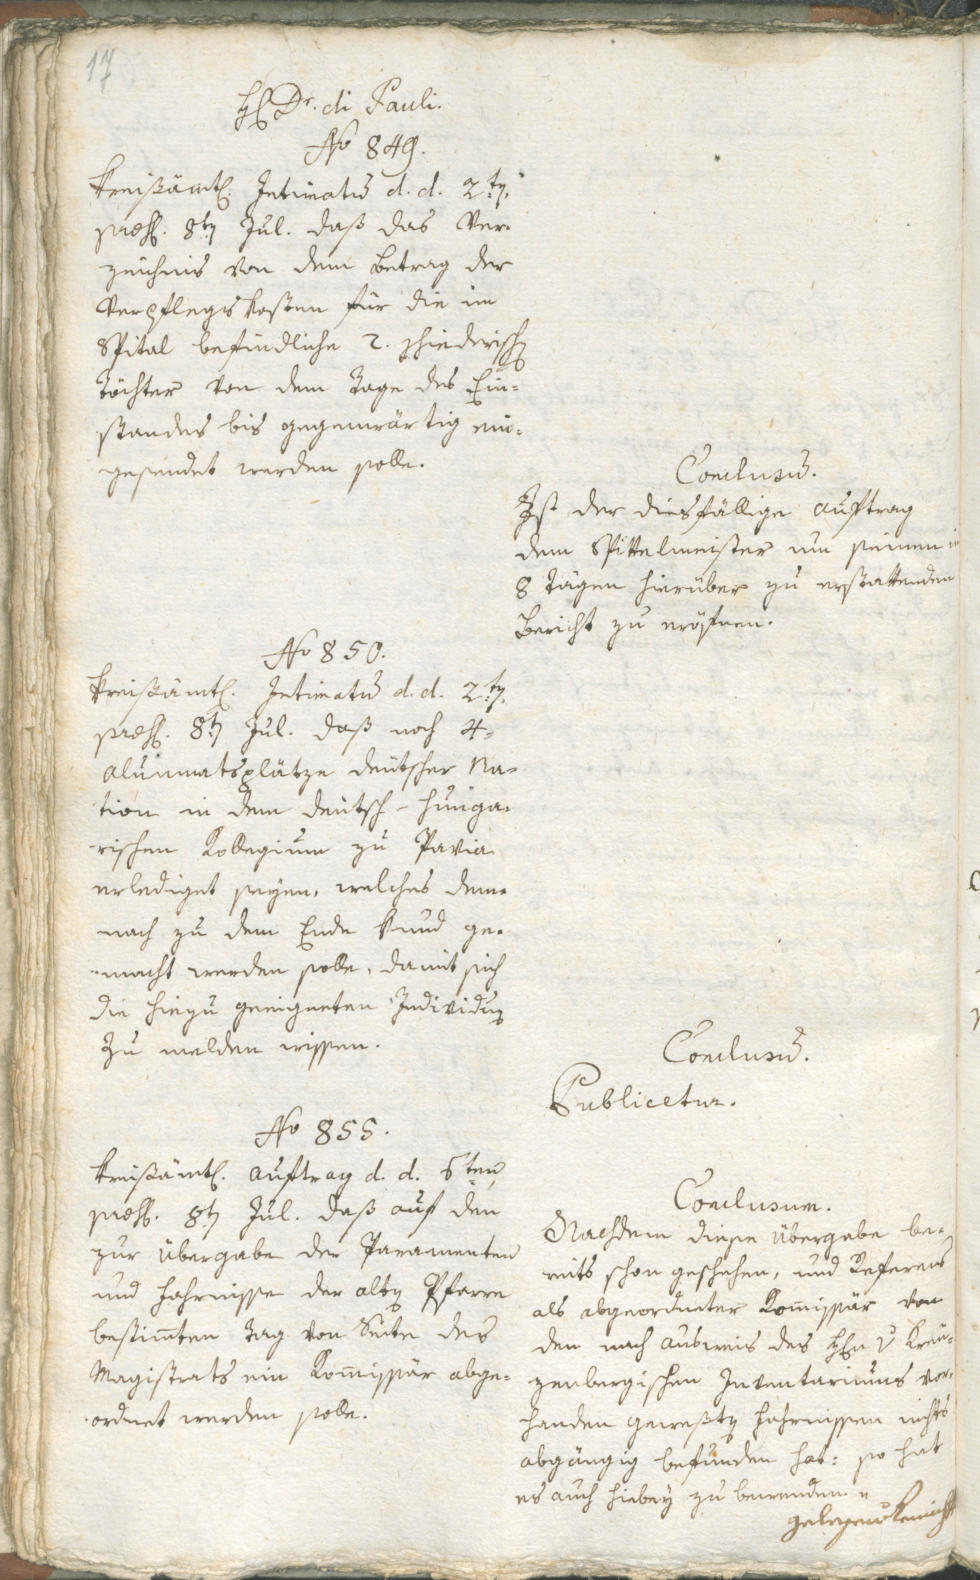 17
H. Dr. di Pauli.
No 849.
Kreißämtl. Intimatum d. d. 2ten
praes. 8ten Jul. daß das Ver-
zeichnis von dem Betrag der
Verpflegskosten für die im
Spital befindliche 2.
Töchter von dem Tage des Ein-
standes bis gegenwärtig ein-
gesendet werden solle.
Conclusum.
Ist der diesfällige Auftrag
dem Spittelmeister um seinen in
8 Tägen hierüber zu erstattenden
Bericht zu eröfnen.
No 850.
Kreißämtl. Intimatum d. d. 2ten
praes. 8ten Jul. daß noch 4-
Alumnatsplätze deutscher Na-
tion in dem deutsch-hunga-
rischen Kollegium zu Pavia
erlediget seyen, welches dem-
nach zu dem Ende kund ge-
macht werden solle, damit sich
die hiezu geeigneten Individuen
zu melden wissen.
Conclusum.
Publicetur.
No 855.
Kreißämtl. Auftrag d. d. 6ten
praes. 8ten Jul. daß auf den
zur Übergabe der Paramenten
und Fahrnisse der alten Pfarre
bestimten Tag von Seite des
Magistrats ein Komissär abge-
ordnet werden solle.
Conclusum.
Nachdem diese Übergabe be-
reits schon geschehen, und Referens
als abgeordneter Komissär von
den nach Ausweis des Hrn v Kreu-
zenbergischen Inventariums vor-
handen gewesten Fahrnissen nichts
abgängig befunden hat: so hat
es auch hiebey zu bewenden.